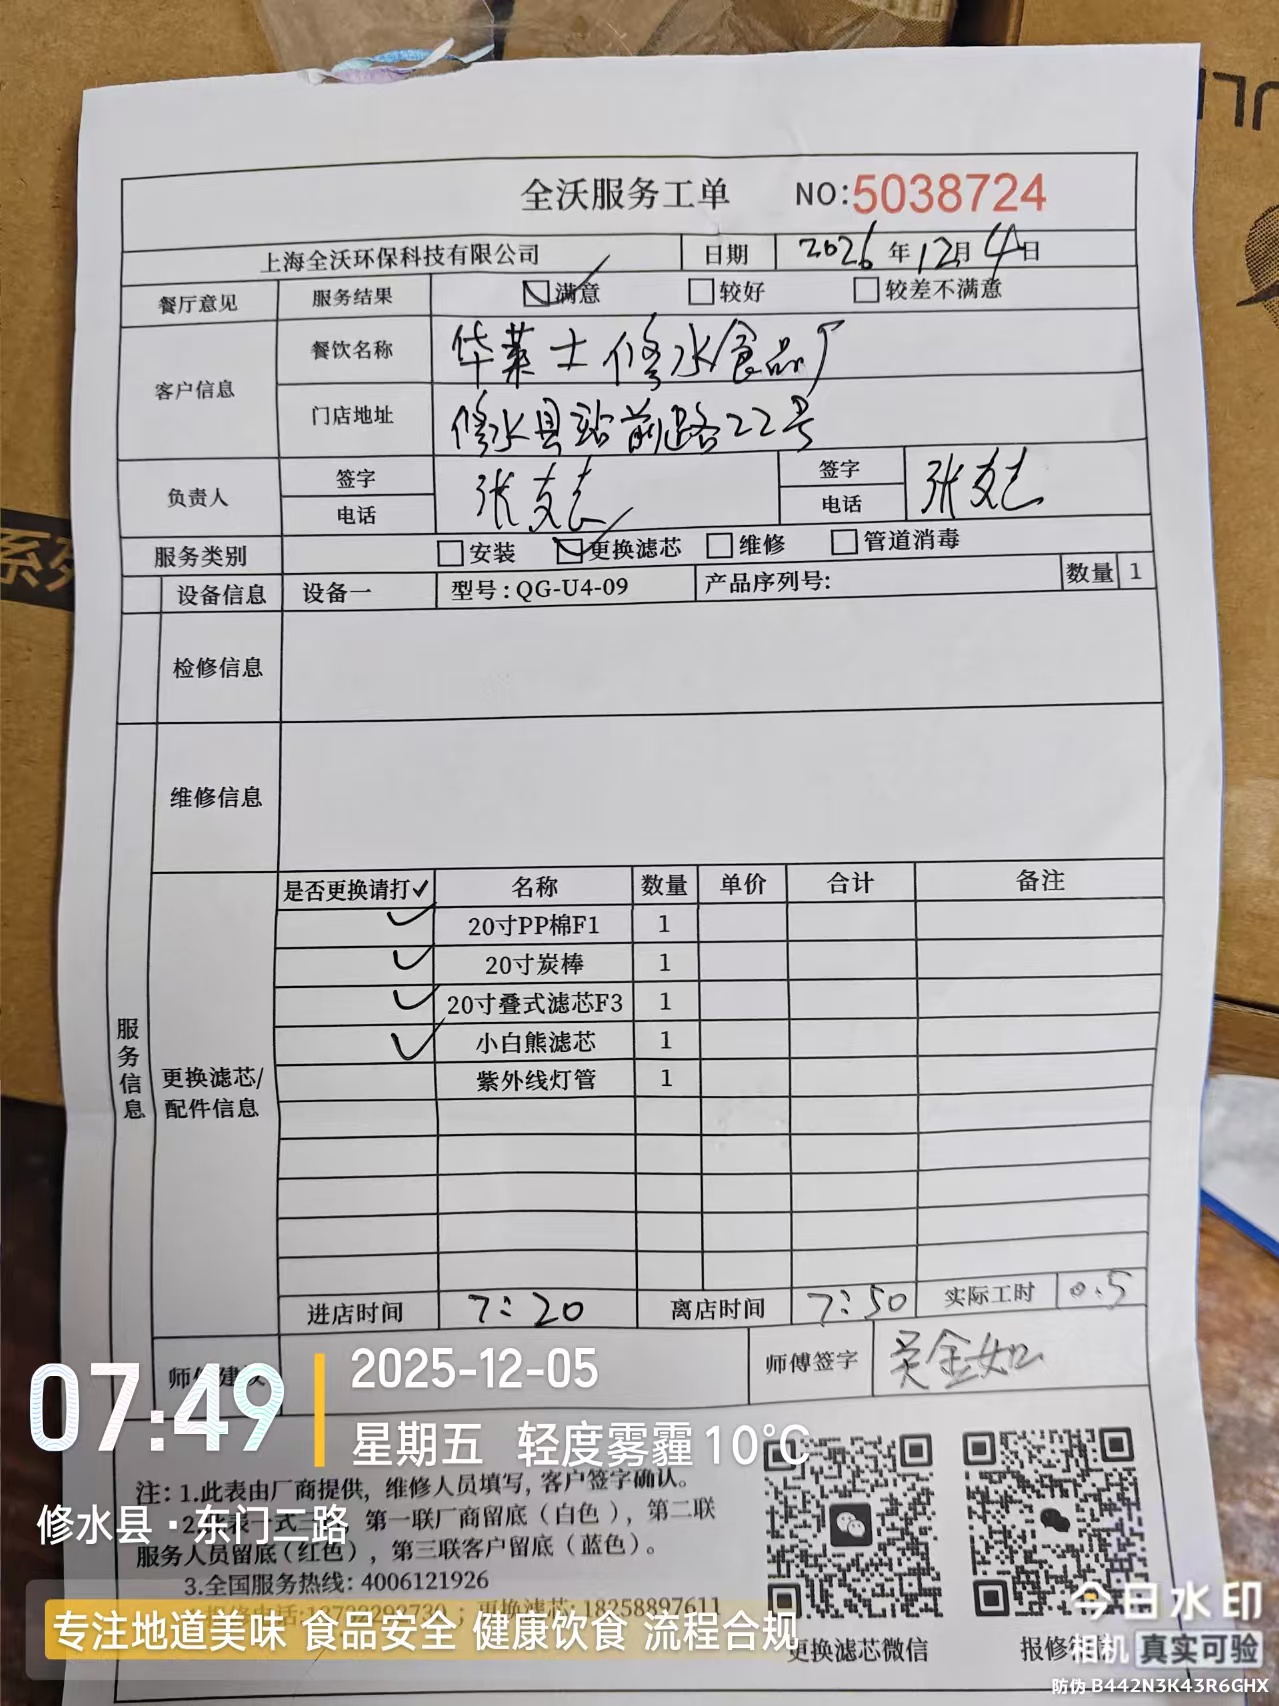 全沃服务工单 NO:5038724
上海全沃环保科技有限公司 日期 2026年12月4日
餐厅意见 服务结果 满意 较好 较差不满意
客户信息 餐饮名称 华莱士修水食品厂
门店地址 修水县站前路22号
负责人 签字 电话 张 签字 电话 张
服务类别 安装 更换滤芯 维修 管道消毒
设备信息 设备一 型号:QG-U4-09 产品序列号: 数量 1
检修信息
维修信息
服务信息
更换滤芯/
配件信息
是否更换请打✓ 名称 数量 单价 合计 备注
✓ 20寸PP棉F1 1
✓ 20寸炭棒 1
✓ 20寸叠式滤芯F3 1
✓ 小白熊滤芯 1
紫外线灯管 1
进店时间 7:20 离店时间 7:50 实际工时 0.5
师傅签字 吴金如
07:49
2025-12-05
星期五 轻度雾霾10°C
修水县·东门二路
注:1.此表由厂商提供,维修人员填写,客户签字确认。
第一联厂商留底(白色),第二联
服务人员留底(红色),第三联客户留底(蓝色)。
3.全国服务热线:4006121926
;更换滤芯:18258897611
专注地道美味 食品安全 健康饮食 流程合规
更换滤芯微信
报修
今日水印
相机 真实可验
防伪 B442N3K43R6GHX
系列